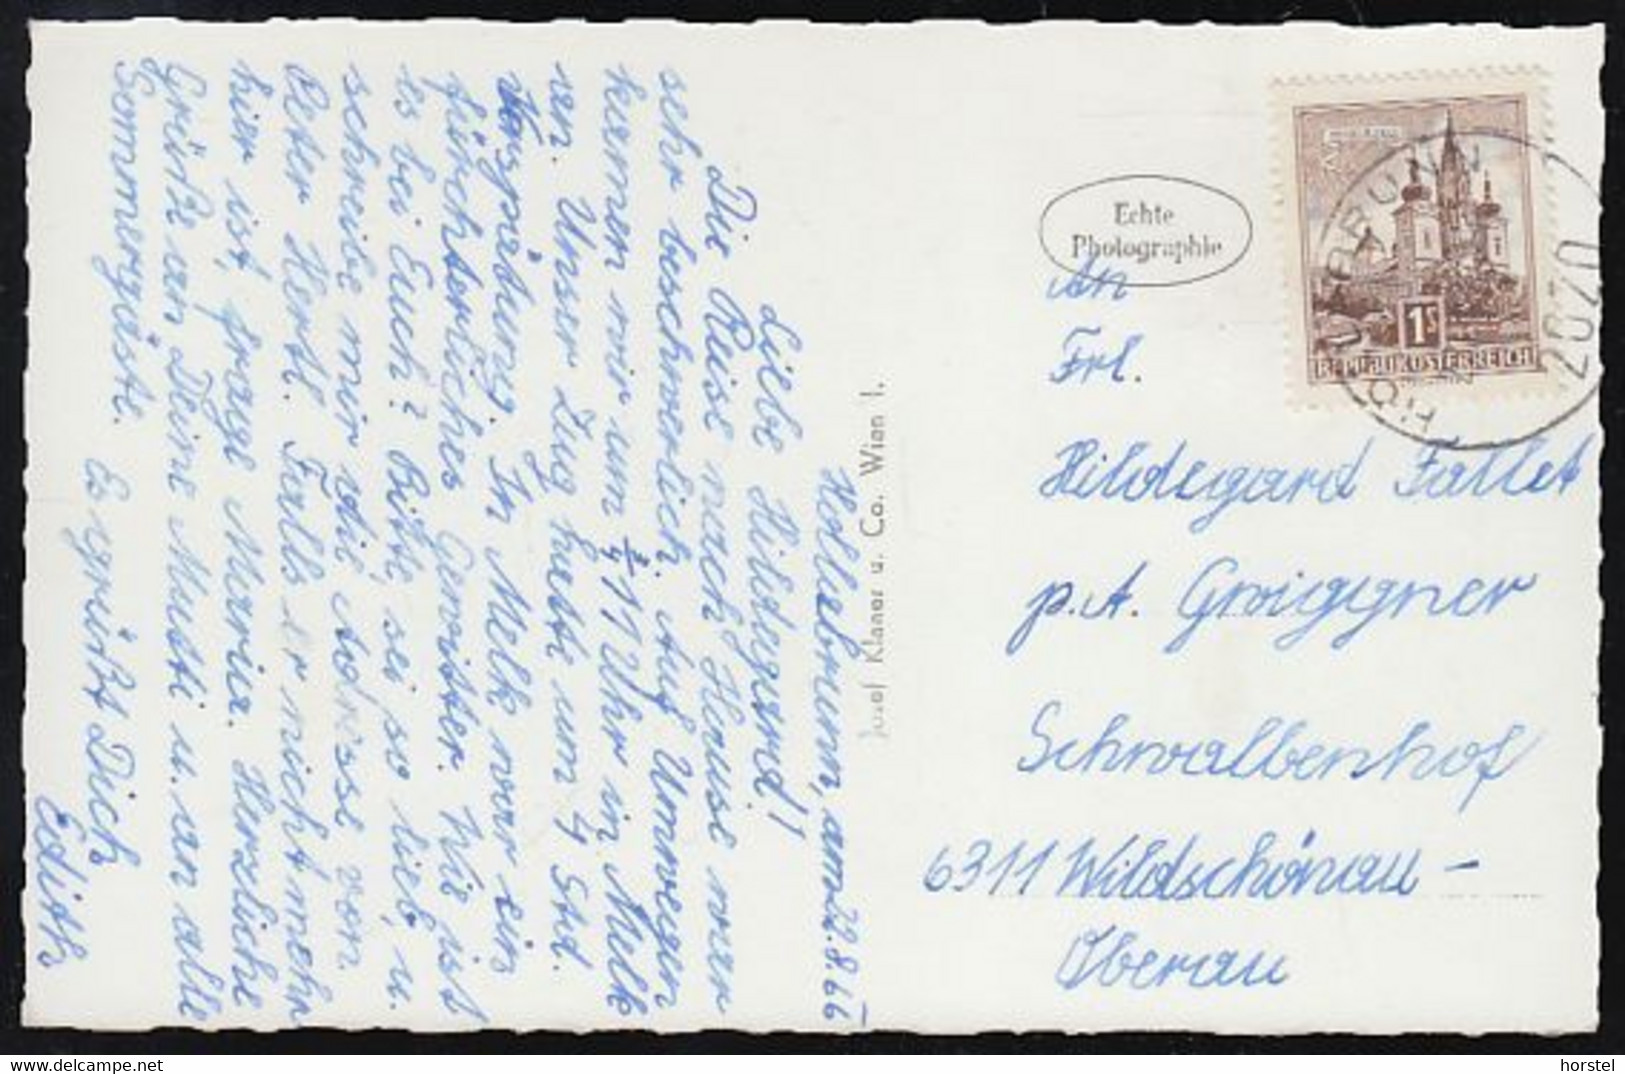 Hollabrunn, am 22.8.66
Liebe Hildegard!
Die Reise nach Hause war
sehr beschwerlich. Auf Umwegen
kamen wir um 3/4 11 Uhr in Melk
an. Unser Zug hatte um 4 Std.
Verspätung. In Melk war ein
fürchterliches Gewitter. Wie ist
es bei Euch? Bitte sei so lieb, u.
schreibe mir die Adresse von
Peter Hertl. Falls er nicht mehr
hier ist, frage Maria. Herzliche
Grüße an Deine Mutti u. an alle
Sommergäste.
Es grüßt Dich
Edith
Josef Klaner u. Co. Wien I.
Echte
Photographie
MARIAZELL
1S
REPUBLIK ÖSTERREICH
2020
An
Frl.
Hildegard Fallet
p.A. Groiggner
Schwalbenhof
6311 Wildschönau -
Oberau
delcampe.net
horstel